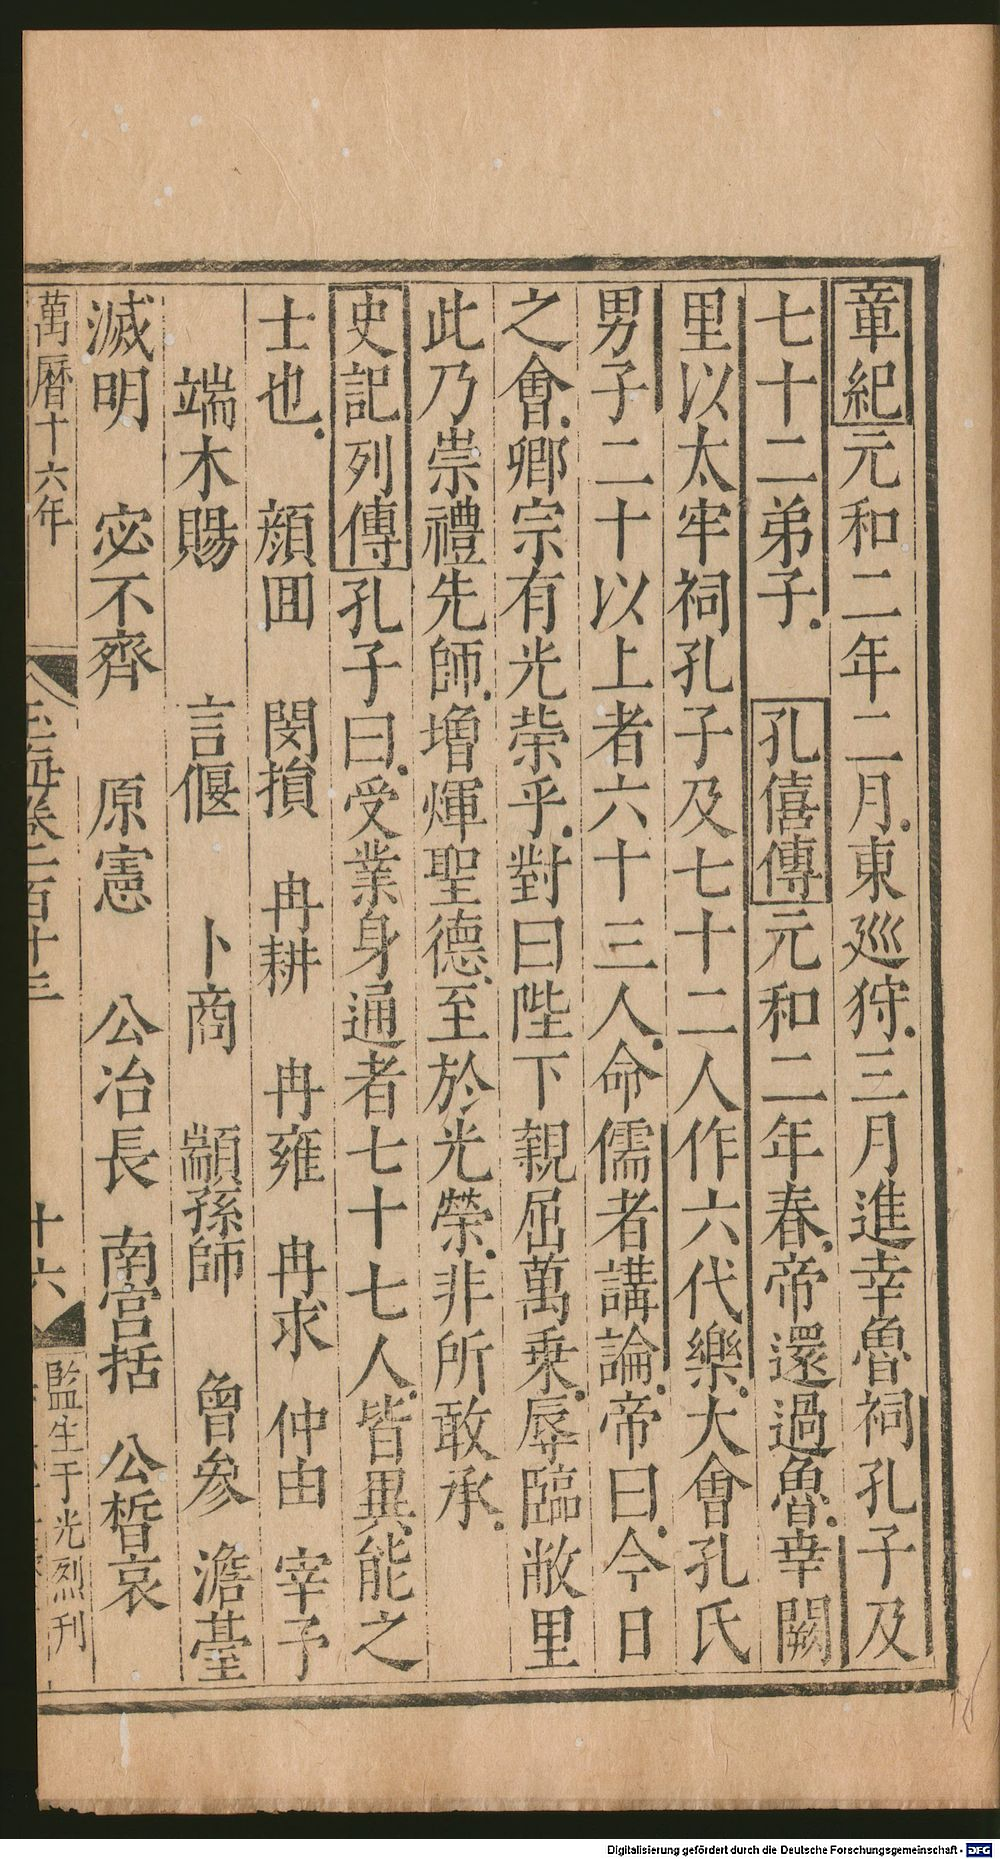 章紀元和二年二月東廵狩三月進幸魯祠孔子及
七十二弟子 孔僖傳元和二年春帝還過魯幸闕
里以太牢祠孔子及七十二人作六代樂大會孔氏
男子二十以上者六十三人命儒者講論帝曰今日
之會卿宗有光榮乎對曰陛下親屈萬乗辱臨敝里
此乃崇禮先師增煇聖德至於光榮非所敢承
史記列傳孔子曰受業身通者七十七人皆異能之
士也 顔囬 閔損 冉耕 冉雍 冉求 仲由 宰予
端木賜 言偃 卜商 顓孫師 曾參 澹臺
滅明 宓不齊 原憲 公冶長 南宫括 公晳哀
萬曆十六年
玉海卷一百十三
十六
監生于光烈刊
Digitalisierung gefördert durch die Deutsche Forschungsgemeinschaft - DFG